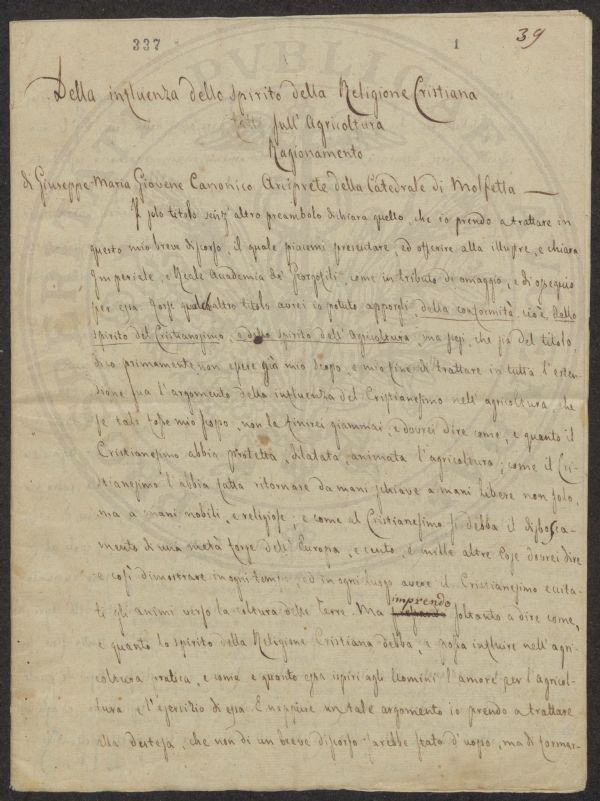 337
1
39
Della influenza dello spirito della Religione Cristiana
sull'Agricoltura
Ragionamento
di Giuseppe Maria Giovene Canonico Arciprete della Catedrale di Molfetta
Il solo titolo senz'altro preambolo dichiara quello, che io prendo a trattare in
questo mio breve discorso, il quale piacemi presentare, ed offerire alla illustre, e chiara
Imperiale, e Reale Academia de' Georgofili, come in tributo di omaggio, e di ossequio
per essa. Forse qualch'altro titolo avrei io potuto apporgli, della conformità, cioè, dello
spirito del Cristianesimo, e dello spirito dell'Agricoltura, ma
dico primamente, non essere già mio scopo, e mio fine di trattare in tutta l'esten-
sione sua l'argomento della influenza del Cristianesimo nell'agricoltura, che
se tale fosse mio scopo, non la finirei giammai, e dovrei dire come, e quanto il
Cristianesimo abbia protetta, dilatata, animata l'agricoltura; come il Cri-
stianesimo l'abbia fatta ritornare da mani schiave a mani libere non solo,
ma a mani nobili, e religiose; e come al Cristianesimo si debba il disbosca-
mento di una metà forse dell'Europa, e cento, e mille altre cose dovrei dire
e così dimostrare in ogni tempo, ed in ogni luogo avere il Cristianesimo eccita-
ti gli animi verso la coltura delle Terre. Ma imprendo soltanto a dire come,
e quanto lo spirito della Religione Cristiana debba, e possa influire nell'agri-
coltura pratica, e come e quanto essa ispiri agli Uomini l'amore per l'agricol-
tura e l'esercizio di essa. E neppure un tale argomento io prendo a trattare
alla distesa, che non di un breve discorso sarebbe stato d'uopo, ma di formar-